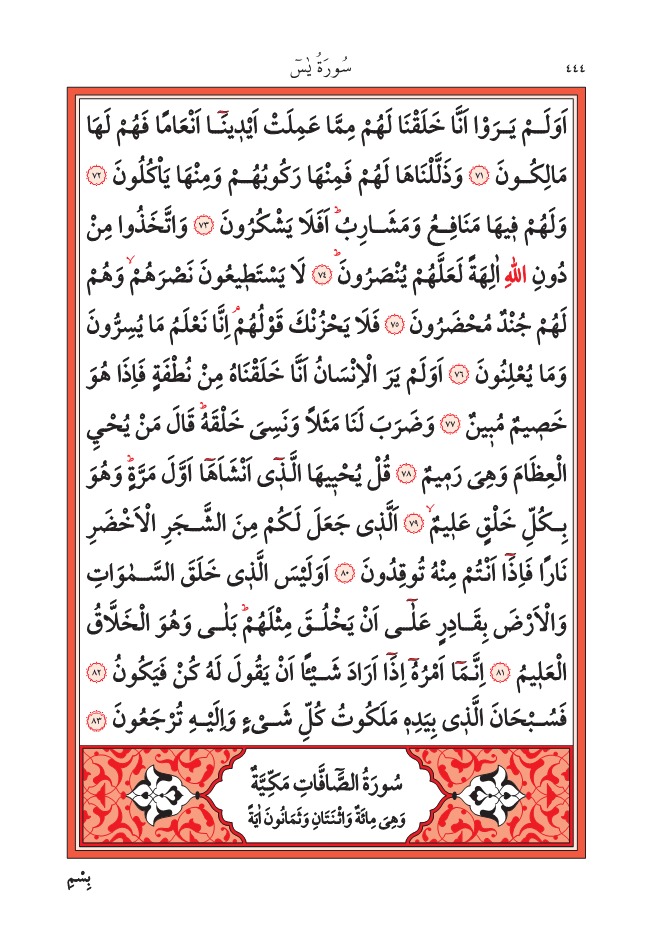 ٤٤٤
سُورَةُ يٰسٓ
اَوَلَمْ يَرَوْا اَنَّا خَلَقْنَا لَهُمْ مِمَّا عَمِلَتْ اَيْد۪ينَٓا اَنْعَامًا فَهُمْ لَهَا
مَالِكُونَ ﴿٧١﴾ وَذَلَّلْنَاهَا لَهُمْ فَمِنْهَا رَكُوبُهُمْ وَمِنْهَا يَأْكُلُونَ ﴿٧٢﴾
وَلَهُمْ ف۪يهَا مَنَافِعُ وَمَشَارِبُۜ اَفَلَا يَشْكُرُونَ ﴿٧٣﴾ وَاتَّخَذُوا مِنْ
دُونِ اللّٰهِ اٰلِهَةً لَعَلَّهُمْ يُنْصَرُونَۜ ﴿٧٤﴾ لَا يَسْتَط۪يعُونَ نَصْرَهُمْۙ وَهُمْ
لَهُمْ جُنْدٌ مُحْضَرُونَ ﴿٧٥﴾ فَلَا يَحْزُنْكَ قَوْلُهُمْۢ اِنَّا نَعْلَمُ مَا يُسِرُّونَ
وَمَا يُعْلِنُونَ ﴿٧٦﴾ اَوَلَمْ يَرَ الْاِنْسَانُ اَنَّا خَلَقْنَاهُ مِنْ نُطْفَةٍ فَاِذَا هُوَ
خَص۪يمٌ مُب۪ينٌ ﴿٧٧﴾ وَضَرَبَ لَنَا مَثَلًا وَنَسِيَ خَلْقَهُۜ قَالَ مَنْ يُحْيِ
الْعِظَامَ وَهِيَ رَم۪يمٌ ﴿٧٨﴾ قُلْ يُحْي۪يهَا الَّذ۪ٓي اَنْشَاَهَٓا اَوَّلَ مَرَّةٍۜ وَهُوَ
بِكُلِّ خَلْقٍ عَل۪يمٌۙ ﴿٧٩﴾ اَلَّذ۪ي جَعَلَ لَكُمْ مِنَ الشَّجَرِ الْاَخْضَرِ
نَارًا فَاِذَٓا اَنْتُمْ مِنْهُ تُوقِدُونَ ﴿٨٠﴾ اَوَلَيْسَ الَّذ۪ي خَلَقَ السَّمٰوَاتِ
وَالْاَرْضَ بِقَادِرٍ عَلٰٓى اَنْ يَخْلُقَ مِثْلَهُمْۜ بَلٰى وَهُوَ الْخَلَّاقُ
الْعَل۪يمُ ﴿٨١﴾ اِنَّمَٓا اَمْرُهُٓ اِذَٓا اَرَادَ شَيْـًٔا اَنْ يَقُولَ لَهُ كُنْ فَيَكُونُ ﴿٨٢﴾
فَسُبْحَانَ الَّذ۪ي بِيَدِه۪ مَلَكُوتُ كُلِّ شَيْءٍ وَاِلَيْهِ تُرْجَعُونَ ﴿٨٣﴾
سُورَةُ الصَّٓافَّاتِ مَكِّيَّةٌ
وَهِيَ مِائَةٌ وَاثْنَتَانِ وَثَمَانُونَ اٰيَةً
بِسْمِ